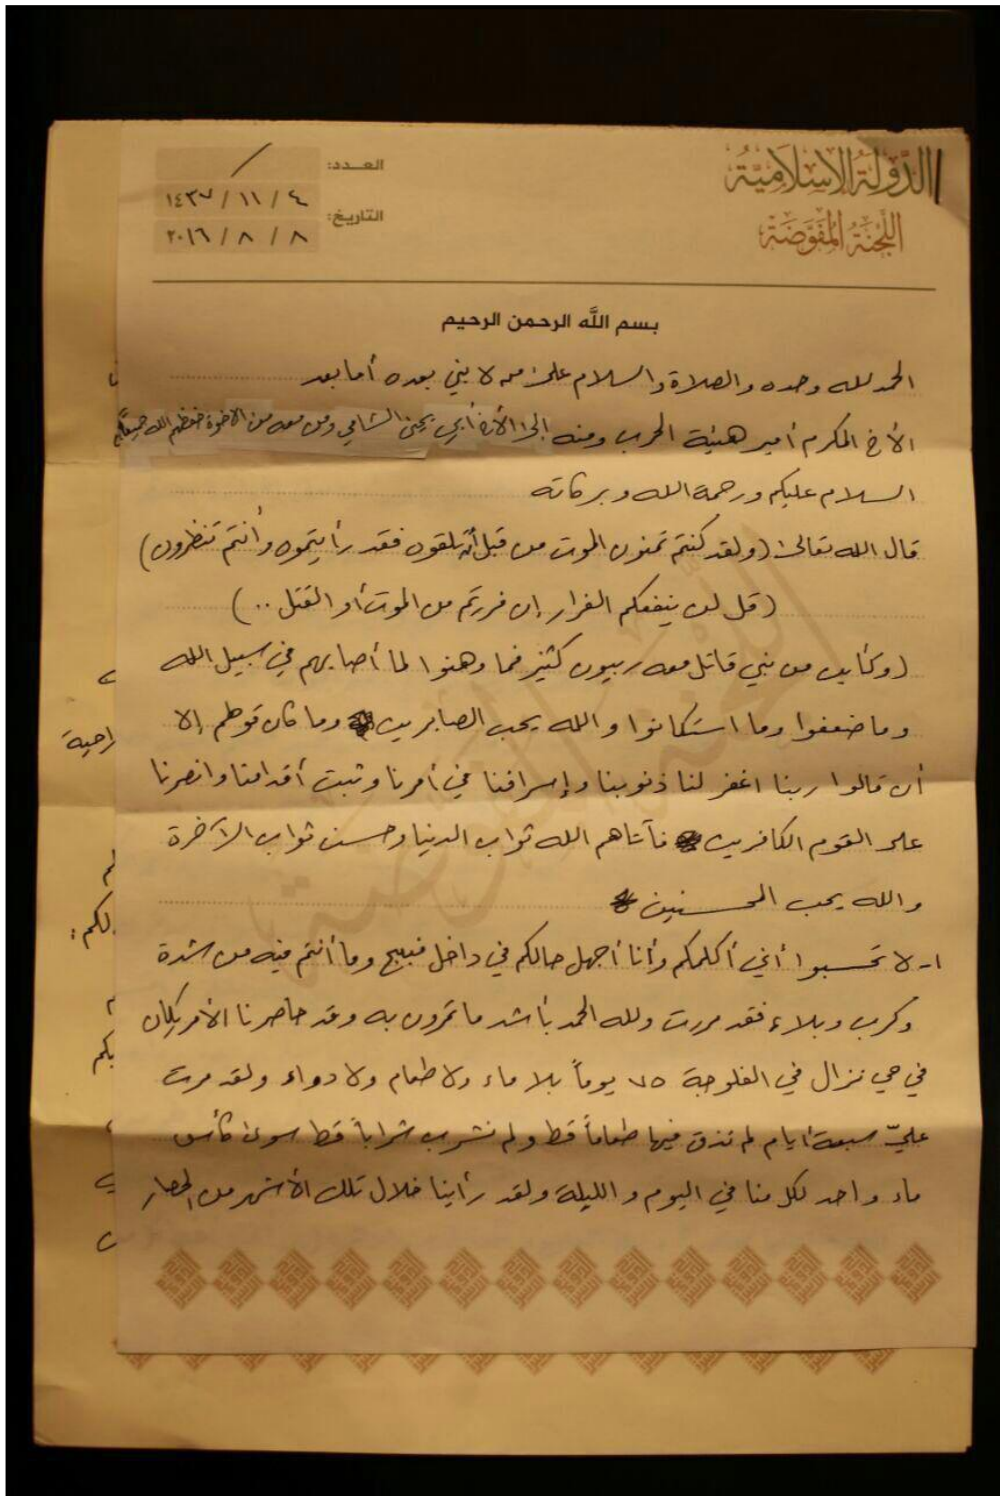 الدولة الإسلامية
اللجنة المفوضة
العدد: /
التاريخ: ٤ / ١١ / ١٤٣٧
٨ / ٨ / ٢٠١٦
بسم الله الرحمن الرحيم
الحمد لله وحده والصلاة والسلام على من لا نبي بعده أما بعد
الأخ المكرم أمير هيئة الحرب ومنه إلى الأخ أبي يحيى الشامي ومن معه من الاخوة حفظهم الله جميعاً
السلام عليكم ورحمة الله وبركاته
قال الله تعالى: (ولقد كنتم تمنون الموت من قبل أن تلقوه فقد رأيتموه وأنتم تنظرون)
(قل لن ينفعكم الفرار إن فررتم من الموت أو القتل ..)
(وكأين من نبي قاتل معه ربيون كثير فما وهنوا لما أصابهم في سبيل الله
وما ضعفوا وما استكانوا والله يحب الصابرين وما كان قولهم إلا
أن قالوا ربنا اغفر لنا ذنوبنا وإسرافنا في أمرنا وثبت أقدامنا وانصرنا
على القوم الكافرين فآتاهم الله ثواب الدنيا وحسن ثواب الآخرة
والله يحب المحسنين
١- لا تحسبوا أني أكلمكم وأنا أجهل حالكم في داخل منبج وما أنتم فيه من شدة
وكرب وبلاء فقد مررت ولله الحمد بأشد ما تمرون به وقد حاصرنا الأمريكان
في حي نزال في الفلوجة ٧٥ يوماً بلا ماء ولا طعام ولا دواء ولقد مرت
عليّ سبعة أيام لم نذق فيها طعاماً قط ولم نشرب شراباً قط سوى كأس
ماء واحد لكل منا في اليوم والليلة ولقد رأينا خلال تلك الأشهر من الحصار